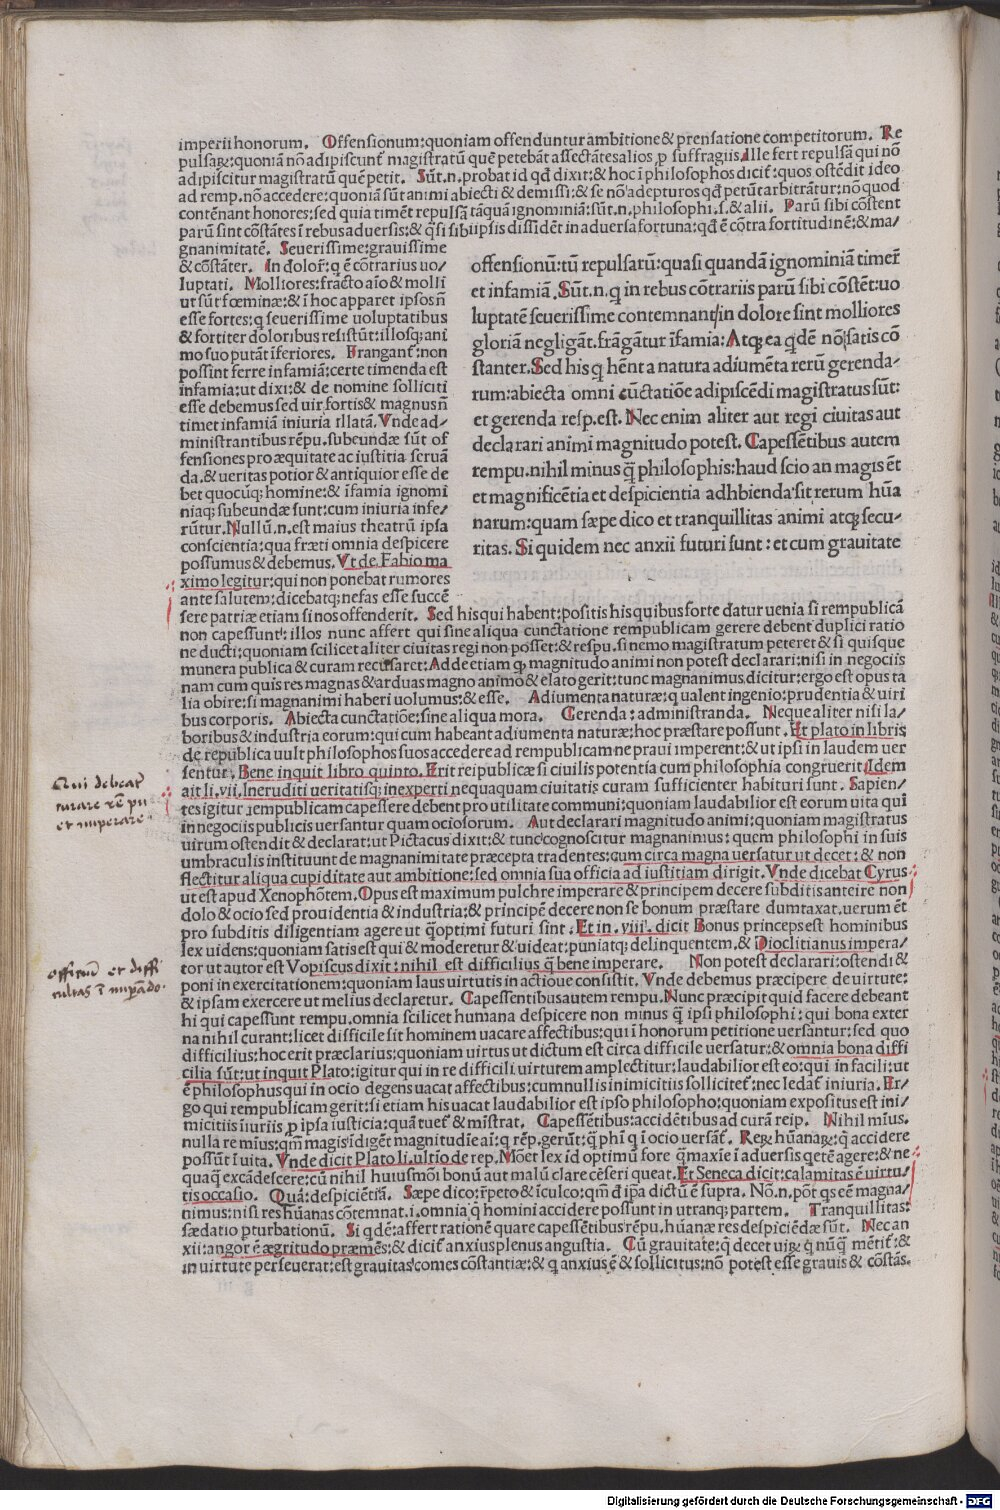 imperii honorum. Offensionum: quoniam offenduntur ambitione & prensatione competitorum. Re
pulsaꝝ: quoniā nō adipiscunt᷑ magistratū quē petebāt affectātes alios ꝑ suffragiis. Ille fert repulsā qui nō
adipiscitur magistratū quē petit. Sūt.n. probat id qđ dixit: & hoc ī philosophos dicit᷑: quos ostēdit ideo
ad remp. nō accedere: quoniā sūt animi abiecti & demissi: & se nō adepturos qđ petūt arbitrātur: nō quod
contēnant honores: sed quia timēt repulsā tāquā ignominiā: sūt.n. philosophi .s. & alii. Parū sibi cōstent
parū sint cōstātes ī rebus aduersis: & q̄si sibi ipsis dissidēt in aduersa fortuna: qđ ē cōtra fortitudinē: & ma/
gnanimitatē. Seuerissime: grauissime
& cōstāter. In dolor᷑: q ē cōtrarius uo/
luptati. Molliores: fracto aīo & molli
ut sūt fœminæ: & ī hoc apparet ipsos ñ
esse fortes: q seuerissime uoluptatibus
& fortiter doloribus resistūt: illosq; ani
mo suo putāt īferiores. Frangant᷑: non
possint ferre infamiā: certe timenda est
infamia: ut dixi: & de nomine solliciti
esse debemus sed uir fortis & magnus ñ
timet infamiā iniuria illatā. Vnde ad-
ministrantibus rēpu. subeundæ sūt of
fensiones pro æquitate ac iustitia seruā
da. & ueritas potior & antiquior esse de
bet quocūq; homine: & īfamia ignomi
niaq; subeundæ sunt: cum iniuria infe/
rūtur. Nullū.n. est maius theatrū ipsa
conscientia: qua fræti omnia despicere
possumus & debemus. Vt de Fabio ma
ximo legitur: qui non ponebat rumores
ante salutem: dicebatq; nefas esse succē
sere patriæ etiam si nos offenderit. Sed his qui habent: positis his quibus forte datur uenia si rempublicā
offensionū: tū repulsarū: quasi quandā ignominiā timer᷑
et infamiā. Sūt.n. q in rebus cōtrariis parū sibi cōstēt: uo
luptatē seuerissime contemnant/in dolore sint molliores
gloriā negligāt. frāgātur īfamia: Atq; ea q̄dē nō satis cō
stanter. Sed his q hēnt a natura adiumēta rerū gerenda-
rum: abiecta omni cūctatiōe adipiscēdi magistratus sūt:
et gerenda resp. est. Nec enim aliter aut regi ciuitas aut
declarari animi magnitudo potest. Capessētibus autem
rempu. nihil minus q̄ philosophis: haud scio an magis ēt
et magnificētia et despicientia adhbienda sit rerum hūa
narum: quam sæpe dico et tranquillitas animi atq; secu-
ritas. Si quidem nec anxii futuri sunt: et cum grauitate
non capessunt: illos nunc affert qui sine aliqua cunctatione rempublicam gerere debent duplici ratio
ne ducti: quoniam scilicet aliter ciuitas regi non posset: & respu. si nemo magistratum peteret & si quisque
munera publica & curam recusaret: Adde etiam q magnitudo animi non potest declarari: nisi in negociis
nam cum quis res magnas & arduas magno animo & elato gerit: tunc magnanimus dicitur: ergo est opus ta
lia obire: si magnanimi haberi uolumus: & esse. Adiumenta naturæ: q ualent ingenio: prudentia & uiri
bus corporis. Abiecta cunctatiōe: sine aliqua mora. Gerenda: administranda. Neque aliter nisi la/
boribus & industria eorum: qui cum habeant adiumenta naturæ: hoc præstare possunt. Et plato in libris
de republica uult philosophos suos accedere ad rempublicam ne praui imperent: & ut ipsi in laudem uer
sentur. Bene inquit libro quinto. Erit reipublicæ si ciuilis potentia cum philosophia congruerit. Idem
ait li. vii. Ineruditi ueritatisq; inexperti nequaquam ciuitatis curam sufficienter habituri sunt. Sapien/
tes igitur rempublicam capessere debent pro utilitate communi: quoniam laudabilior est eorum uita qui
in negociis publicis uersantur quam ociosorum. Aut declarari magnitudo animi: quoniam magistratus
uirum ostendit & declarat: ut Pictacus dixit: & tunc cognoscitur magnanimus: quem philosophi in suis
umbraculis instituunt de magnanimitate præcepta tradentes: cum circa magna uersatur ut decet: & non
flectitur aliqua cupiditate aut ambitione: sed omnia sua officia ad iustitiam dirigit. Vnde dicebat Cyrus
ut est apud Xenophōtem. Opus est maximum pulchre imperare & principem decere subditis anteire non
dolo & ocio sed prouidentia & industria: & principē decere non se bonum præstare dumtaxat. uerum ēt
pro subditis diligentiam agere ut q̄optimi futuri sint. Et in .viii. dicit Bonus princeps est hominibus
lex uidens: quoniam satis est qui & moderetur & uideat: puniatq; delinquentem. & Dioclitianus impera/
tor ut autor est Vopiscus dixit: nihil est difficilius q̄ bene imperare. Non potest declarari: ostendi &
poni in exercitationem: quoniam laus uirtutis in actioue consistit. Vnde debemus præcipere de uirtute:
& ipsam exercere ut melius declaretur. Capessentibus autem rempu. Nunc præcipit quid facere debeant
hi qui capessunt rempu. omnia scilicet humana despicere non minus q̄ ipsi philosophi: qui bona exter
na nihil curant: licet difficile sit hominem uacare affectibus: qui ī honorum petitione uersantur: sed quo
difficilius: hoc erit præclarius: quoniam uirtus ut dictum est circa difficile uersatur: & omnia bona diffi
cilia sūt: ut inquit Plato: igitur qui in re difficili uirtutem amplectitur: laudabilior est eo: qui in facili: ut
ē philosophus qui in ocio degens uacat affectibus: cum nullis inimicitiis sollicitet᷑: nec ledat᷑ iniuria. Er/
go qui rempublicam gerit: si etiam his uacat laudabilior est ipso philosopho: quoniam expositus est ini/
micitiis īiuriis ꝑ ipsa iusticia: quā tuet᷑ & mīstrat. Capessētibus: accidētibus ad curā reip. Nihil mīus.
nulla re mīus: q̄m magis īdigēt magnitudīe aī: q rēp. gerūt: q̄ phī q ī ocio uersāt᷑. Reꝝ hūanaꝝ: q̄ accidere
possūt ī uita. Vnde dicit Plato li. ultīo de rep. Mōet lex id optimū fore q̄maxīe ī aduersis q̄etē agere: & ne
quaq̄ excādescere: cū nihil huiusmōi bonū aut malū clare cēseri queat. Et Seneca dicit: calamitas ē uirtu/
tis occasio. Quā: despiciētiā. Sæpe dico: r̄peto & īculco: qm̄ đ īpa dictū ē supra. Nō.n. pōt qs eē magna/
nimus: nisi res hūanas cōtemnat .i. omnia q̄ homini accidere possunt in utranq; partem. Tranquillitas:
sædatio ꝑturbationū. Si q̄dē: affert rationē quare capessētibus rēpu. hūanæ res despiciēdæ sūt. Nec an
xii: angor ē ægritudo præmēs: & dicit᷑ anxius plenus angustia. Cū grauitate: q̄ decet uiꝝ q̄ nūq̄ mētit᷑: &
in uirtute perseuerat: est grauitas comes cōstantiæ: & q anxius ē & sollicitus: nō potest esse grauis & cōstās.
Qui debeāt
curare rē pu
et imperare
offitiū et diffi
cultas ī impādo.
Digitalisierung gefördert durch die Deutsche Forschungsgemeinschaft - DFG